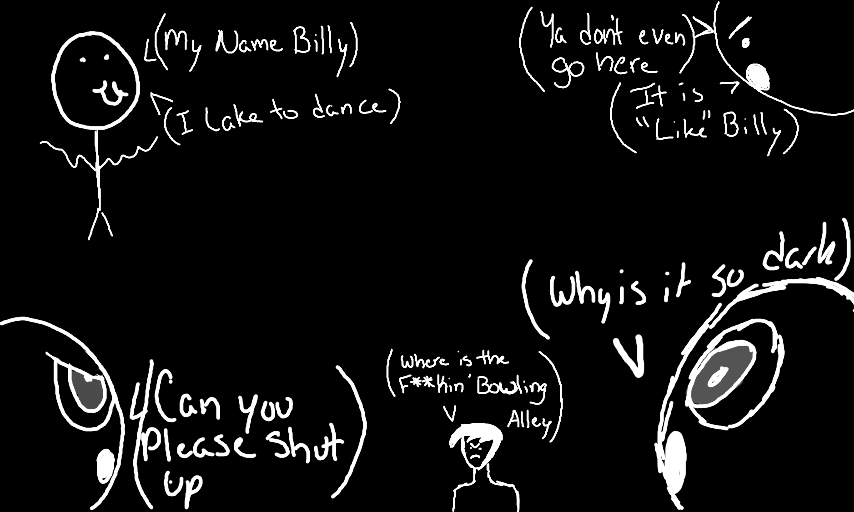 (My Name Billy)
(I Lake to dance)
(Ya don't even
go here)
(It is
"Like" Billy)
(Why is it so dark)
(Can you
Please Shut
up)
(Where is the
F**kin' Bowling
Alley)